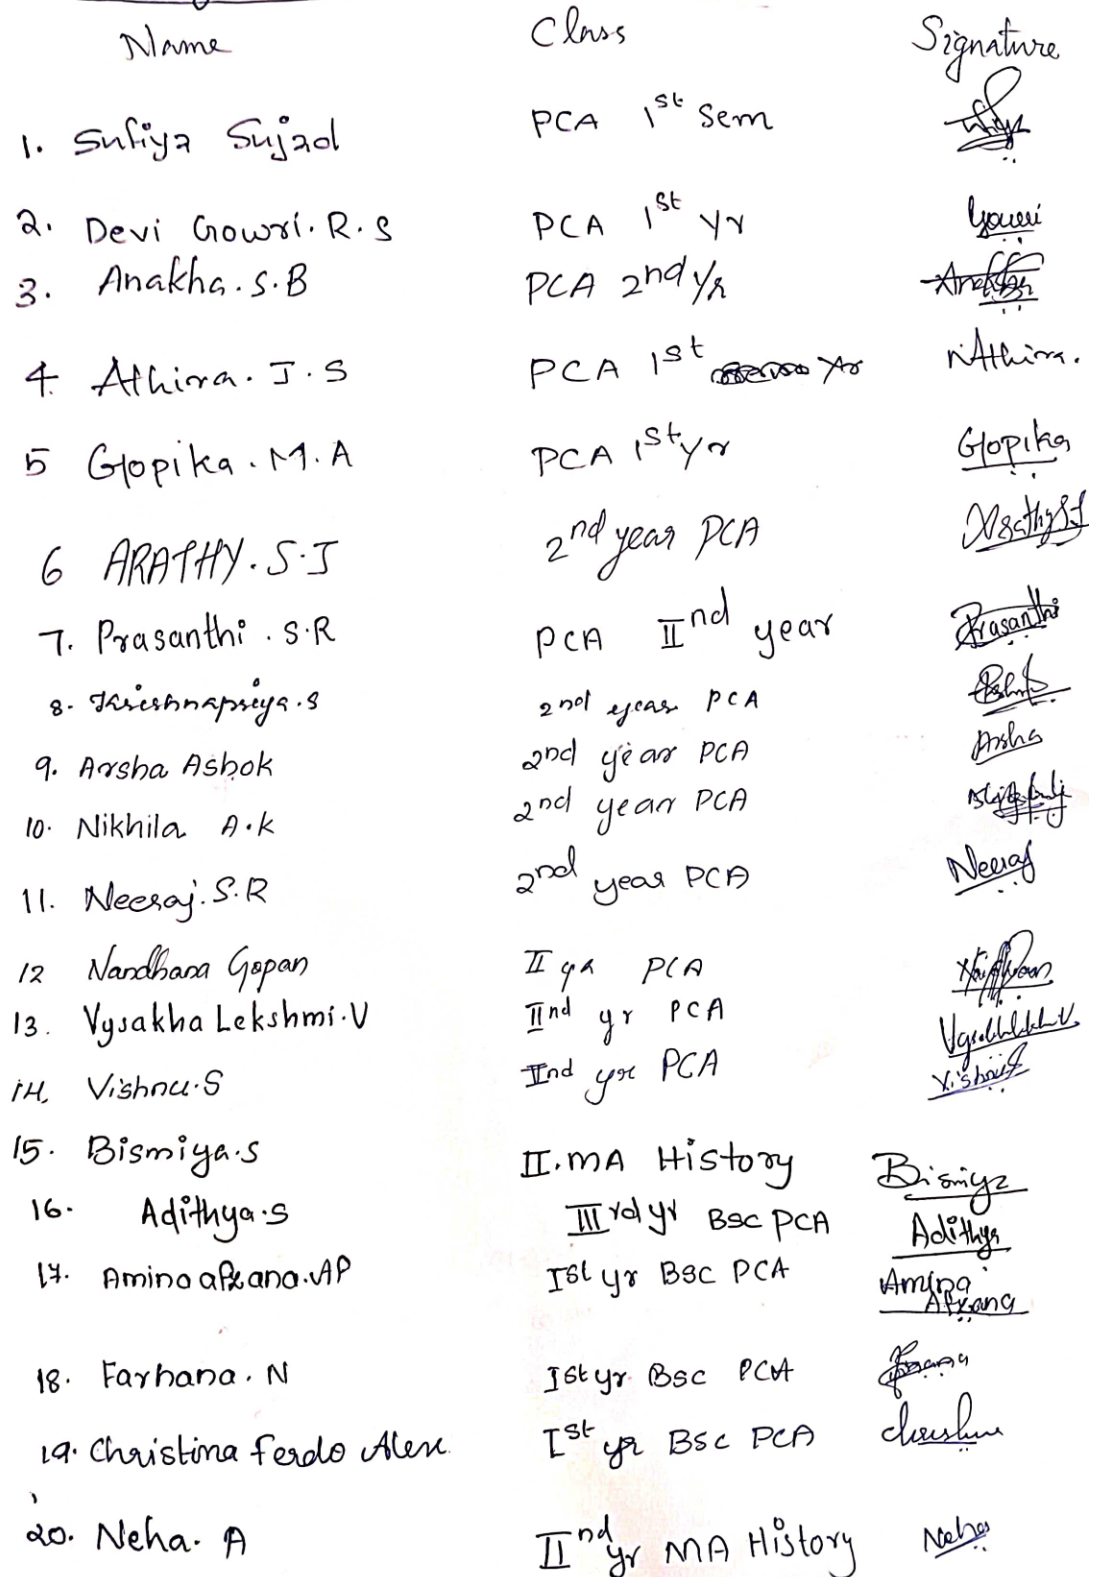 Name Class Signature
1. Sufiya Sujad PCA 1st Sem
2. Devi Gowri. R. S PCA 1st Yr Gowri
3. Anakha. S. B PCA 2nd Yr
4. Athira. J. S PCA 1st Yr Athira.
5 Gopika. M. A PCA 1st yr Gopika
6 ARATHY. S. J 2nd year PCA Arathy SJ
7. Prasanthi. S. R PCA IInd year Prasanthi
8. Krishnapriya. S 2nd year PCA
9. Arsha Ashok 2nd year PCA Arsha
10. Nikhila A. K 2nd year PCA
11. Neeraj. S. R 2nd year PCA Neeraj
12 Nandhana Gopan II yr PCA
13. Vysakha Lekshmi. V IInd yr PCA
14. Vishnu. S IInd yr PCA Vishnu S
15. Bismiya. S II. MA History Bismiya
16. Adithya. S IIIrd yr BSC PCA Adithya
17. Amina afzana. AP Ist yr BSC PCA Amina
Afzana
18. Farhana. N Ist yr BSC PCA
19. Christina Ferdo Alex Ist yr BSC PCA
20. Neha. A IInd yr MA History Neha